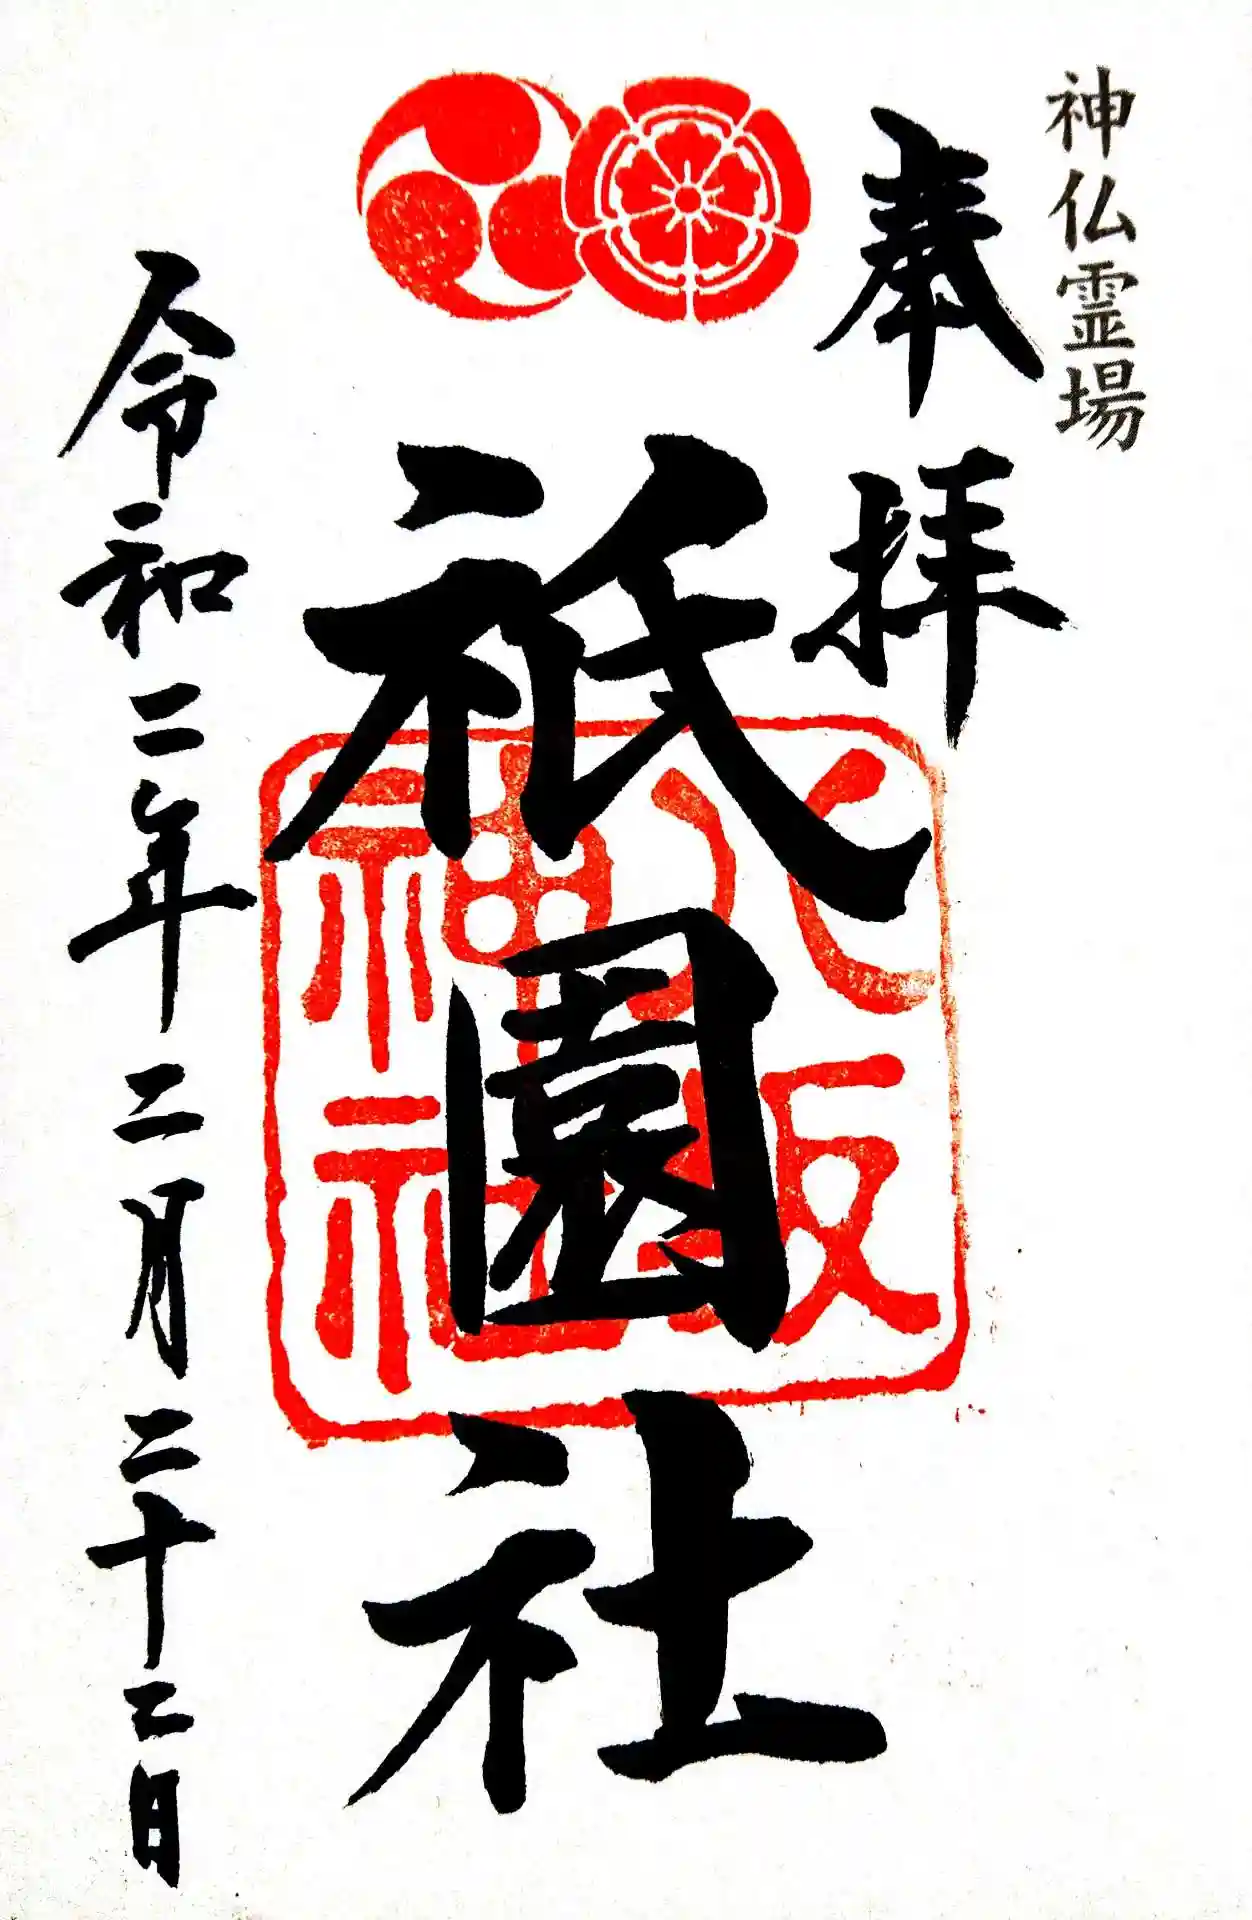 神仏霊場
奉拝
祇園社
八坂神社
令和二年二月二十二日